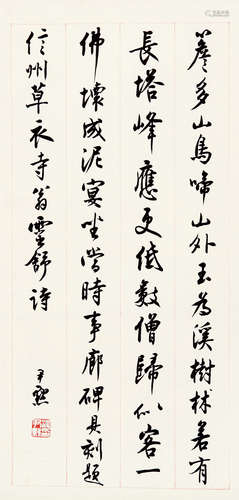 簷多山鳥啼山外玉為溪樹林若有
長塔峰應更低數僧歸似客一
佛壞成泥冥坐當時事廊碑具刻題
信州草衣寺翁靈舒詩
尹默